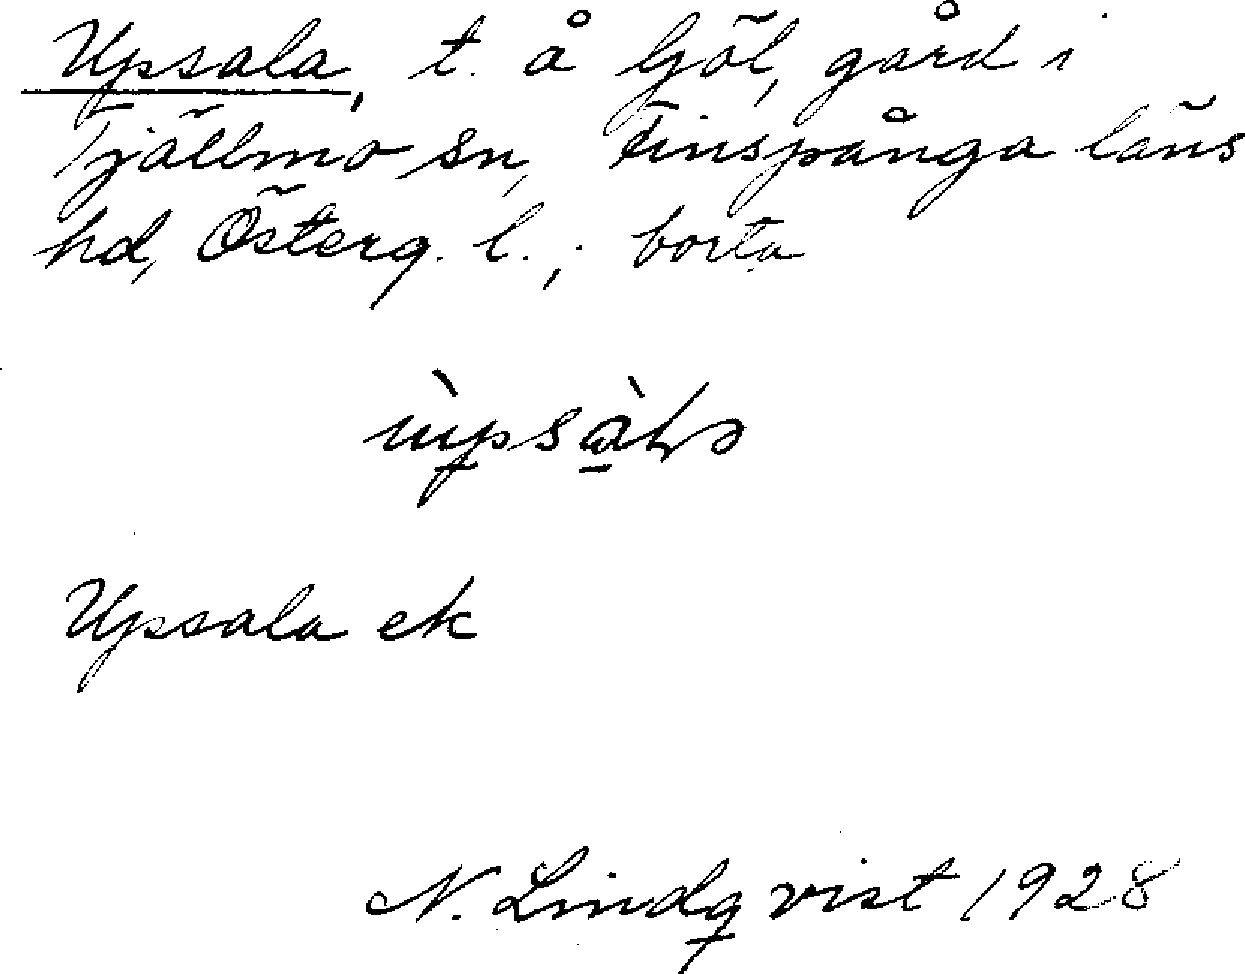 Upsala, t. å Ljöl, gård i
Tjällmo sn, Finspånga läns
hd, Österg. l.; borta
Upsala ek
N. Lindqvist 1928